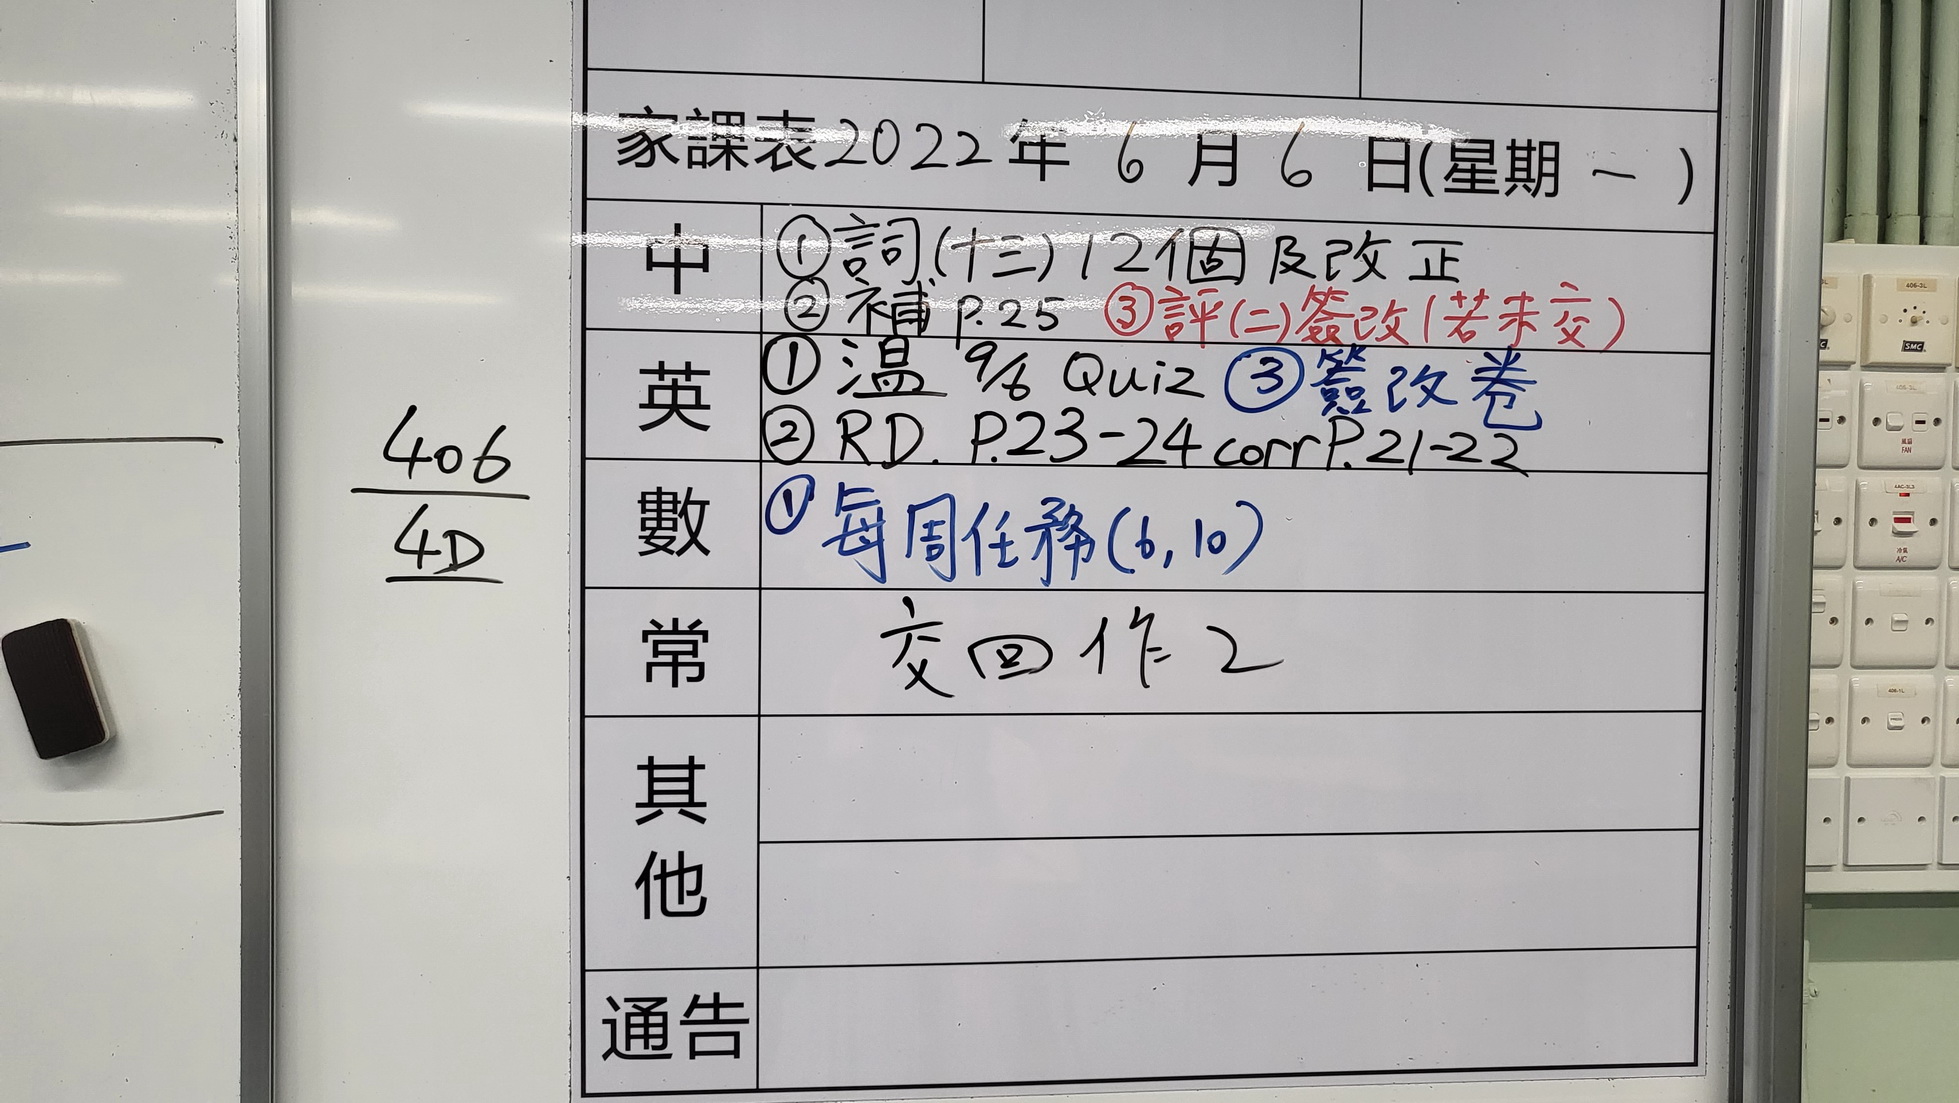 家課表2022年 6 月 6 日(星期 一 )
中
①詞(十三)12個及改正
②補 P.25 ③評(二)簽改(若未交)
英
①溫 9/6 Quiz ③簽改卷
②RD. P.23-24 corr P.21-22
數
①每周任務(6,10)
常
交回作2
其他
通告
406
4D
406-3L
SMC
風扇
FAN
冷氣
A/C